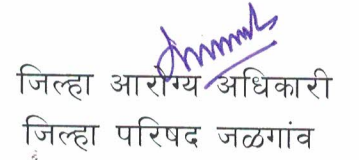 जिल्हा आरोग्य अधिकारी
जिल्हा परिषद जळगांव